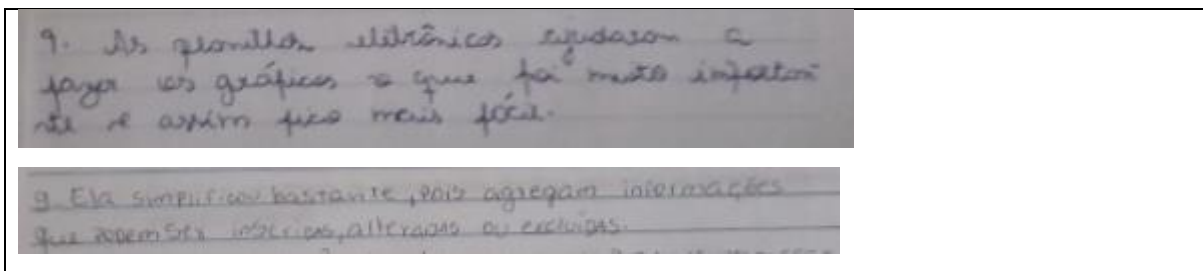 9. As planilhas eletrônicas ajudaram a
fazer os gráficos o que foi muito importan
te e assim fico mais fácil.
9 Ela simplificou bastante, pois agregam informações
que podem ser inseridas, alteradas ou excluidas.